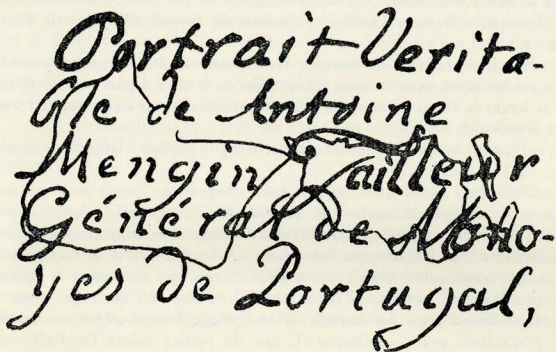 Portrait Verita-
ble de Antoine
Mengin Tailleur
Général de Mono-
yes de Portugal,